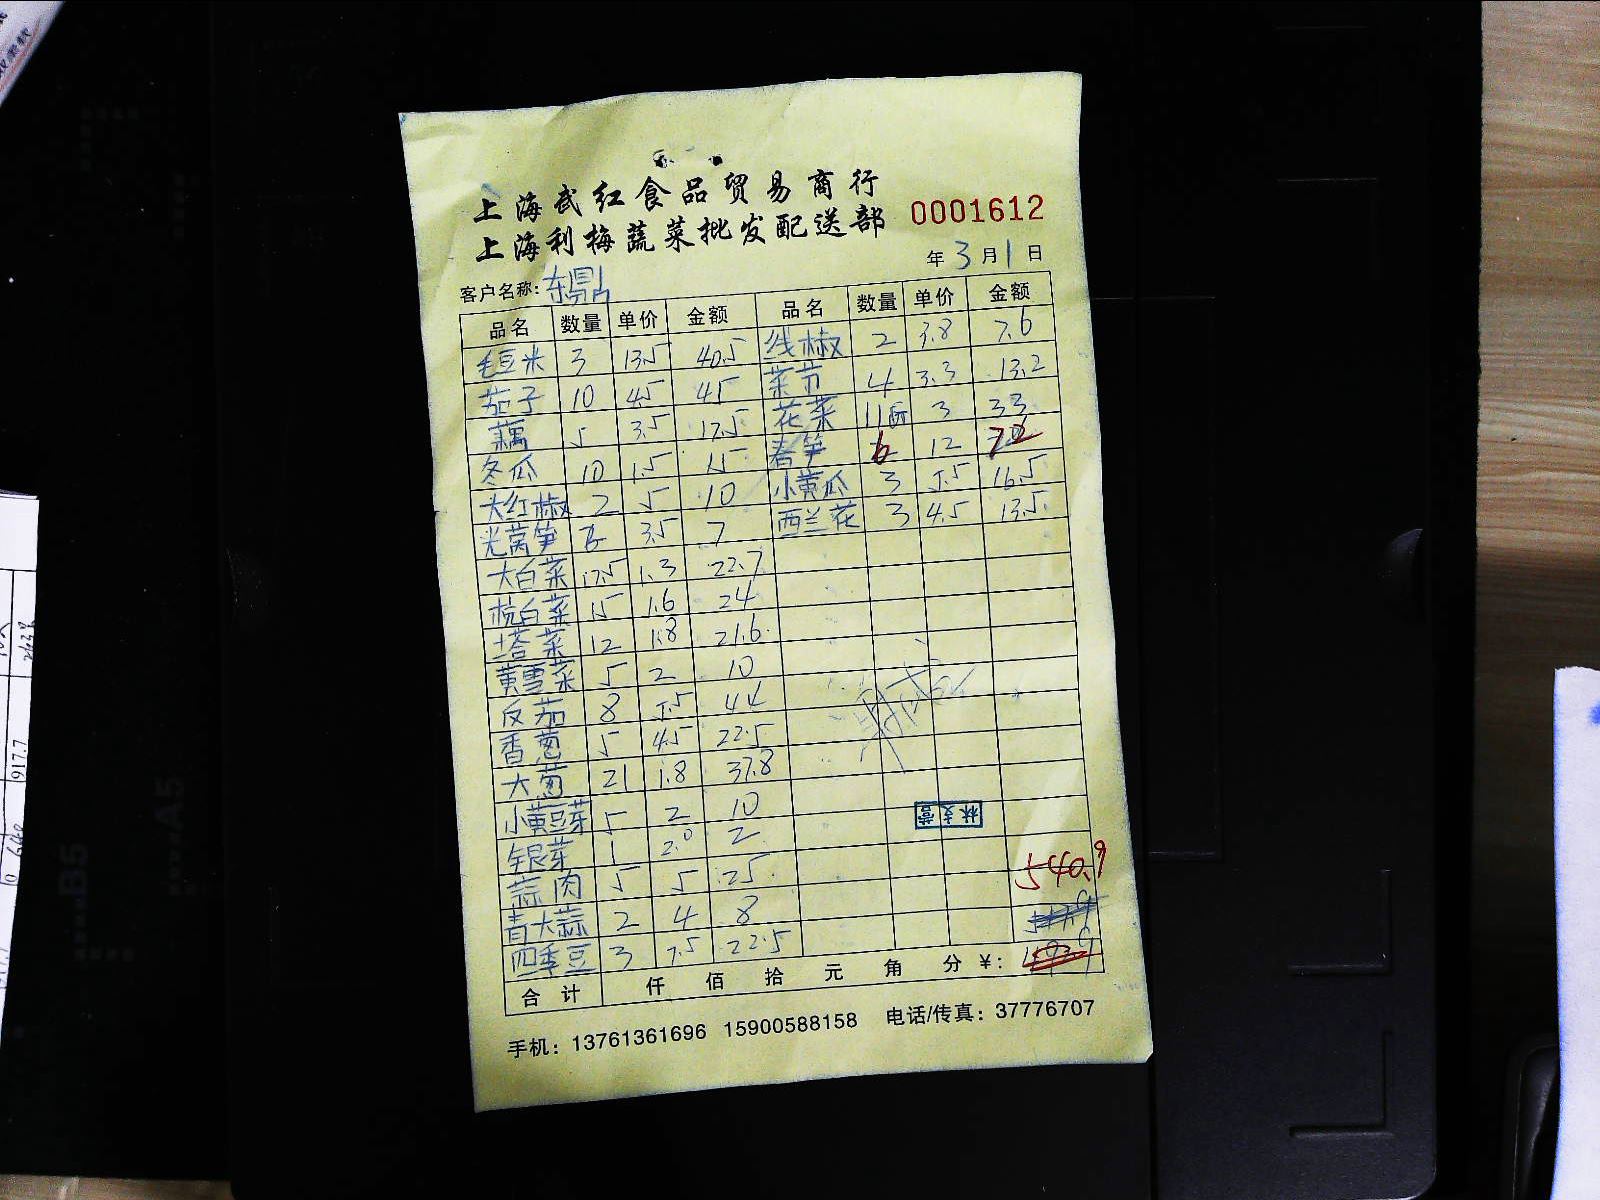 上海武红食品贸易商行
上海利梅蔬菜批发配送部
0001612
年 3 月 1 日
客户名称: 东鼎
品名 数量 单价 金额 品名 数量 单价 金额
毛豆米 3 13.5 40.5 线椒 2 3.8 7.6
茄子 10 4.5 45 菜节 4 3.3 13.2
藕 5 3.5 17.5 花菜 11斤 3 33
冬瓜 10 1.5 15 春笋 6 12 72
大红椒 2 5 10 小黄瓜 3 5.5 16.5
光莴笋 2 3.5 7 西兰花 3 4.5 13.5
大白菜 17.5 1.3 22.7
杭白菜 15 1.6 24
塔菜 12 1.8 21.6
黄雪菜 5 2 10
反茄 8 5.5 44
香葱 5 4.5 22.5
大葱 21 1.8 37.8
小黄豆芽 5 2 10
银芽 1 2.0 2
蒜肉 5 5 25
青大蒜 2 4 8
四季豆 3 7.5 22.5
540.9
合计 仟 佰 拾 元 角 分 ¥:
手机: 13761361696 15900588158 电话/传真: 37776707
B5
A5
917.7